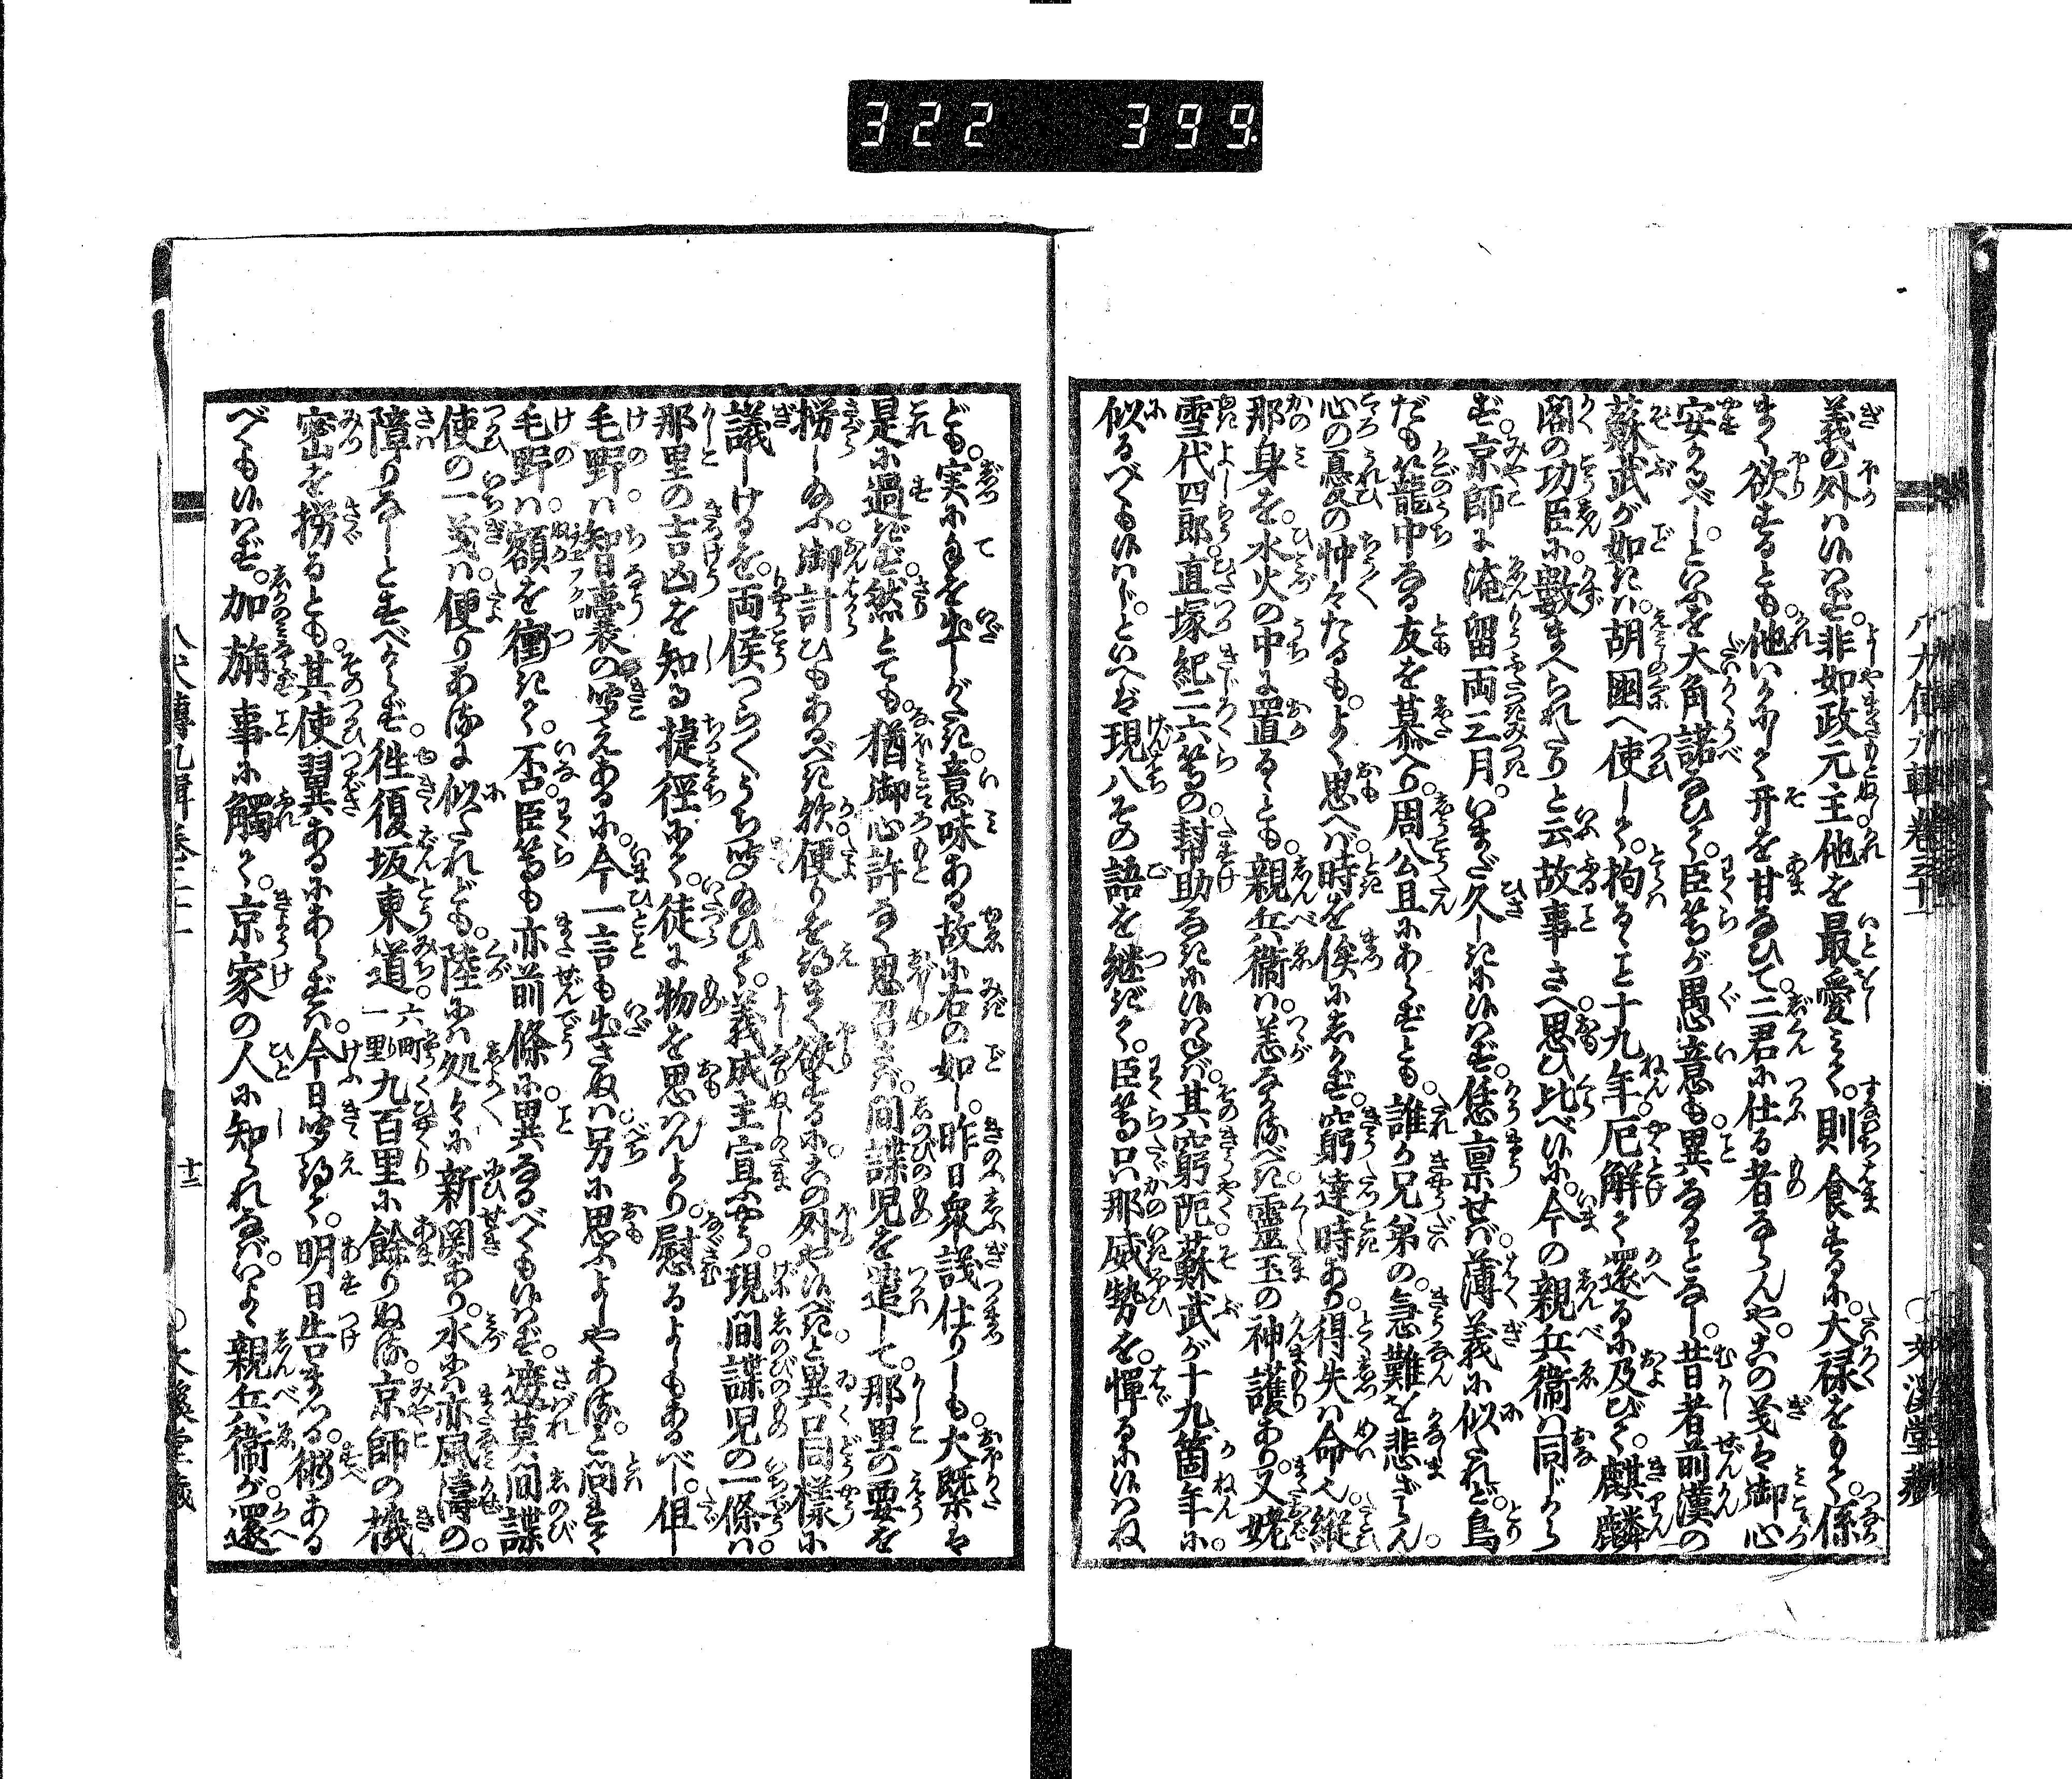 322 399
義の外は候はず。非如政元主他を最愛みて。則食まするに。大禄をもて。係
まく欲するとも。他いかにして开を甘なひて。二君に仕る者ならんや。この義は御心
安かるべし。といふを大角諾なひて。臣等が愚意も。異なることなし。昔者前漢の
蘇武が如きは。胡国へ使して。拘るゝこと十九年。厄解て還るに及びて。麒麟
閣の功臣に。数まへられたりと云故事さへ。思ひ比べ候に。今の親兵衛は同じから
ず。京師に淹留両三月。いまだ久しきに候はず。恁稟せば。薄義に似たれど。鳥
だも籠中なる友を慕へり。周公旦にあらずとも。誰か兄弟の。急難を悲ざらん。
心の憂の忡々たるも。よく思へば。時を俟にしかず。窮達時あり。得失は命也。縦
那身を。水火の中に置るゝとも。親兵衛は。恙なかるべき。霊玉の神護あり。又姥
雪代四郎。直塚紀二六等の。幇助なきに候はねば。其窮阨。蘇武が十九箇年に。
似るべくも候はじ。といへば現八その語を継ぎて。臣等只那威勢を。憚るに候はね
ども。実に手を出しがたき。意味ある故に右の如し。昨日衆議仕りしも。大概は
是に過ぎず。然とても。猶御心許なく思召さば。間諜児を遣して。那里の要を
撈し給ふ。御計ひもあるべき歟。便りを得まく欲するに。この外や候べき。と異口同様に
議しけるを。両侯つらつらうち聞給ひて。義成主宣ふやう。現間諜児の一條は。
那里の吉凶を知る捷徑にて。徒に物を思はんより。慰るよしもあるべし。但
毛野は。智嚢の聞えあるに。今一言も出さぬは。另に思ふよしやある。と問れて
毛野は。額を衝きて。否。臣等も亦前條に。異なるべくも候はず。遮莫間諜
使の一義は。便りあるに似たれども。陸には処々に新関あり。水には亦風濤の。
障りなしとすべからず。徃復坂東道。六町一里九百里に餘りぬる。京師の機
密を撈るとも。其使翼あるにあらずは。今日聞得て。明日告まつる。術ある
べくも候はず。加旃事に觸て。京家の人に知られなば。いよいよ親兵衛が。還
八犬傳九輯卷三十一
十三
文溪堂藏